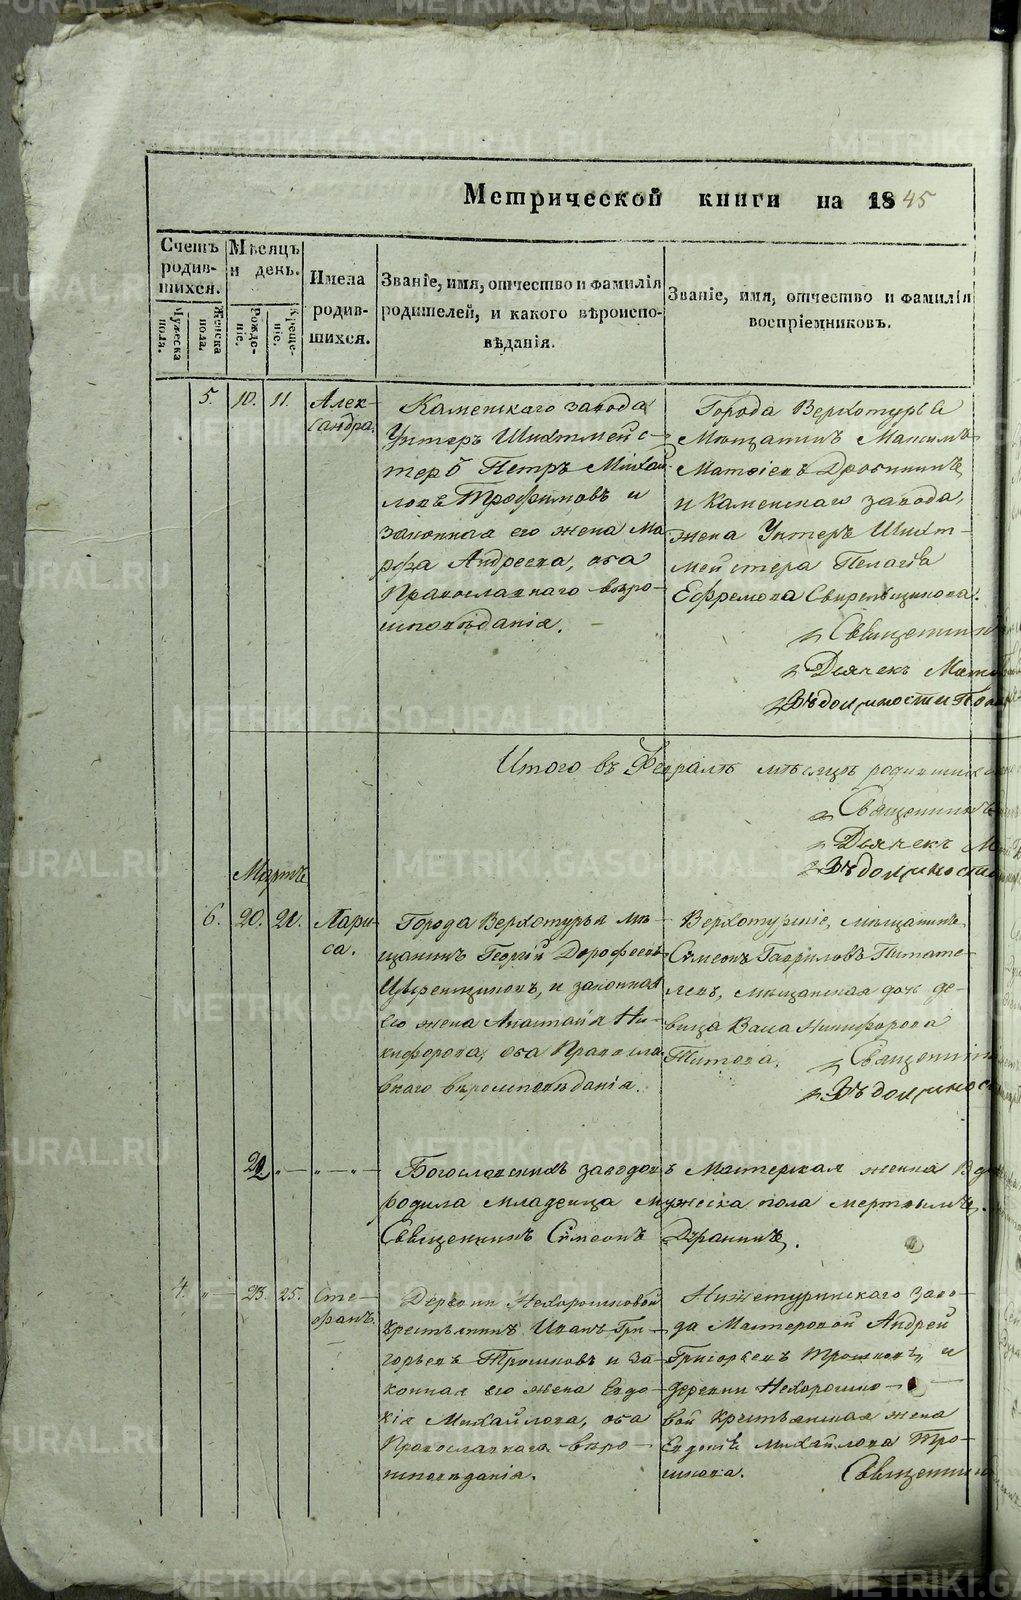 METRIKI.GASO-URAL.RU
Метрической книги на 1845
Счетъ родив-шихся.
Мужеска пола.
Женска пола.
Мѣсяцъ и день.
Рожде-ніе.
Креще-ніе.
Имена родив-шихся.
Званіе, имя, отчество и фамилія
родителей, и какого вѣроиспо-
вѣданія.
Званіе, имя, отчество и фамилія
воспріемниковъ.
5. 10. 11. Алек-
сандра.
Каменскаго завода
Унтеръ Шихтмейс-
теръ Петръ Михай
ловъ Трофимовъ и
законная его жена Ма
рѳа Андреева, оба
Православнаго вѣро-
исповѣданія.
Города Верхотурья
Мѣщанинъ Максимъ
и Каменскаго завода,
жена Унтеръ Шихт-
мейстера Пелагія
Ефремова
Священник
Дьячекъ
Въ должности Поно
Итого въ Февралѣ мѣсяцѣ родившихся
Священникъ
Дьячекъ М
Въ должности
Мартъ
6. 20. 21. Лари-
са.
Города Верхотурья мѣ
щанинъ Георгій Дорофеевъ
и законная
его жена Анастасія Ни-
кифорова, оба Правосла
внаго вѣроисповѣданія.
Верхотурскіе, мѣщанинъ
Сѵмеонъ Гавриловъ Титате-
левъ, мѣщанская дочь де-
вица Васса Никифорова
Титова. Священник
Въ должнос
22 " — " — " — Богословскихъ заводовъ Мастерская женка
родила младенца мужеска пола мертвымъ.
Священникъ Сѵмеонъ
4. " — 23. 25. Сте-
фанъ.
Деревни Нехорошковой
крестьянинъ Иванъ Гри-
горьевъ Трошковъ и за
конная его жена Евдо-
кія Михайлова, оба
Православнаго вѣро-
исповѣданія.
Нижнетуринскаго заво-
да Мастеровой Андрей
Григорьевъ Трошковъ, и
деревни Нехорошко-
вой крестьянская жена
Евдокія Михайлова Тро-
шкова. Священник